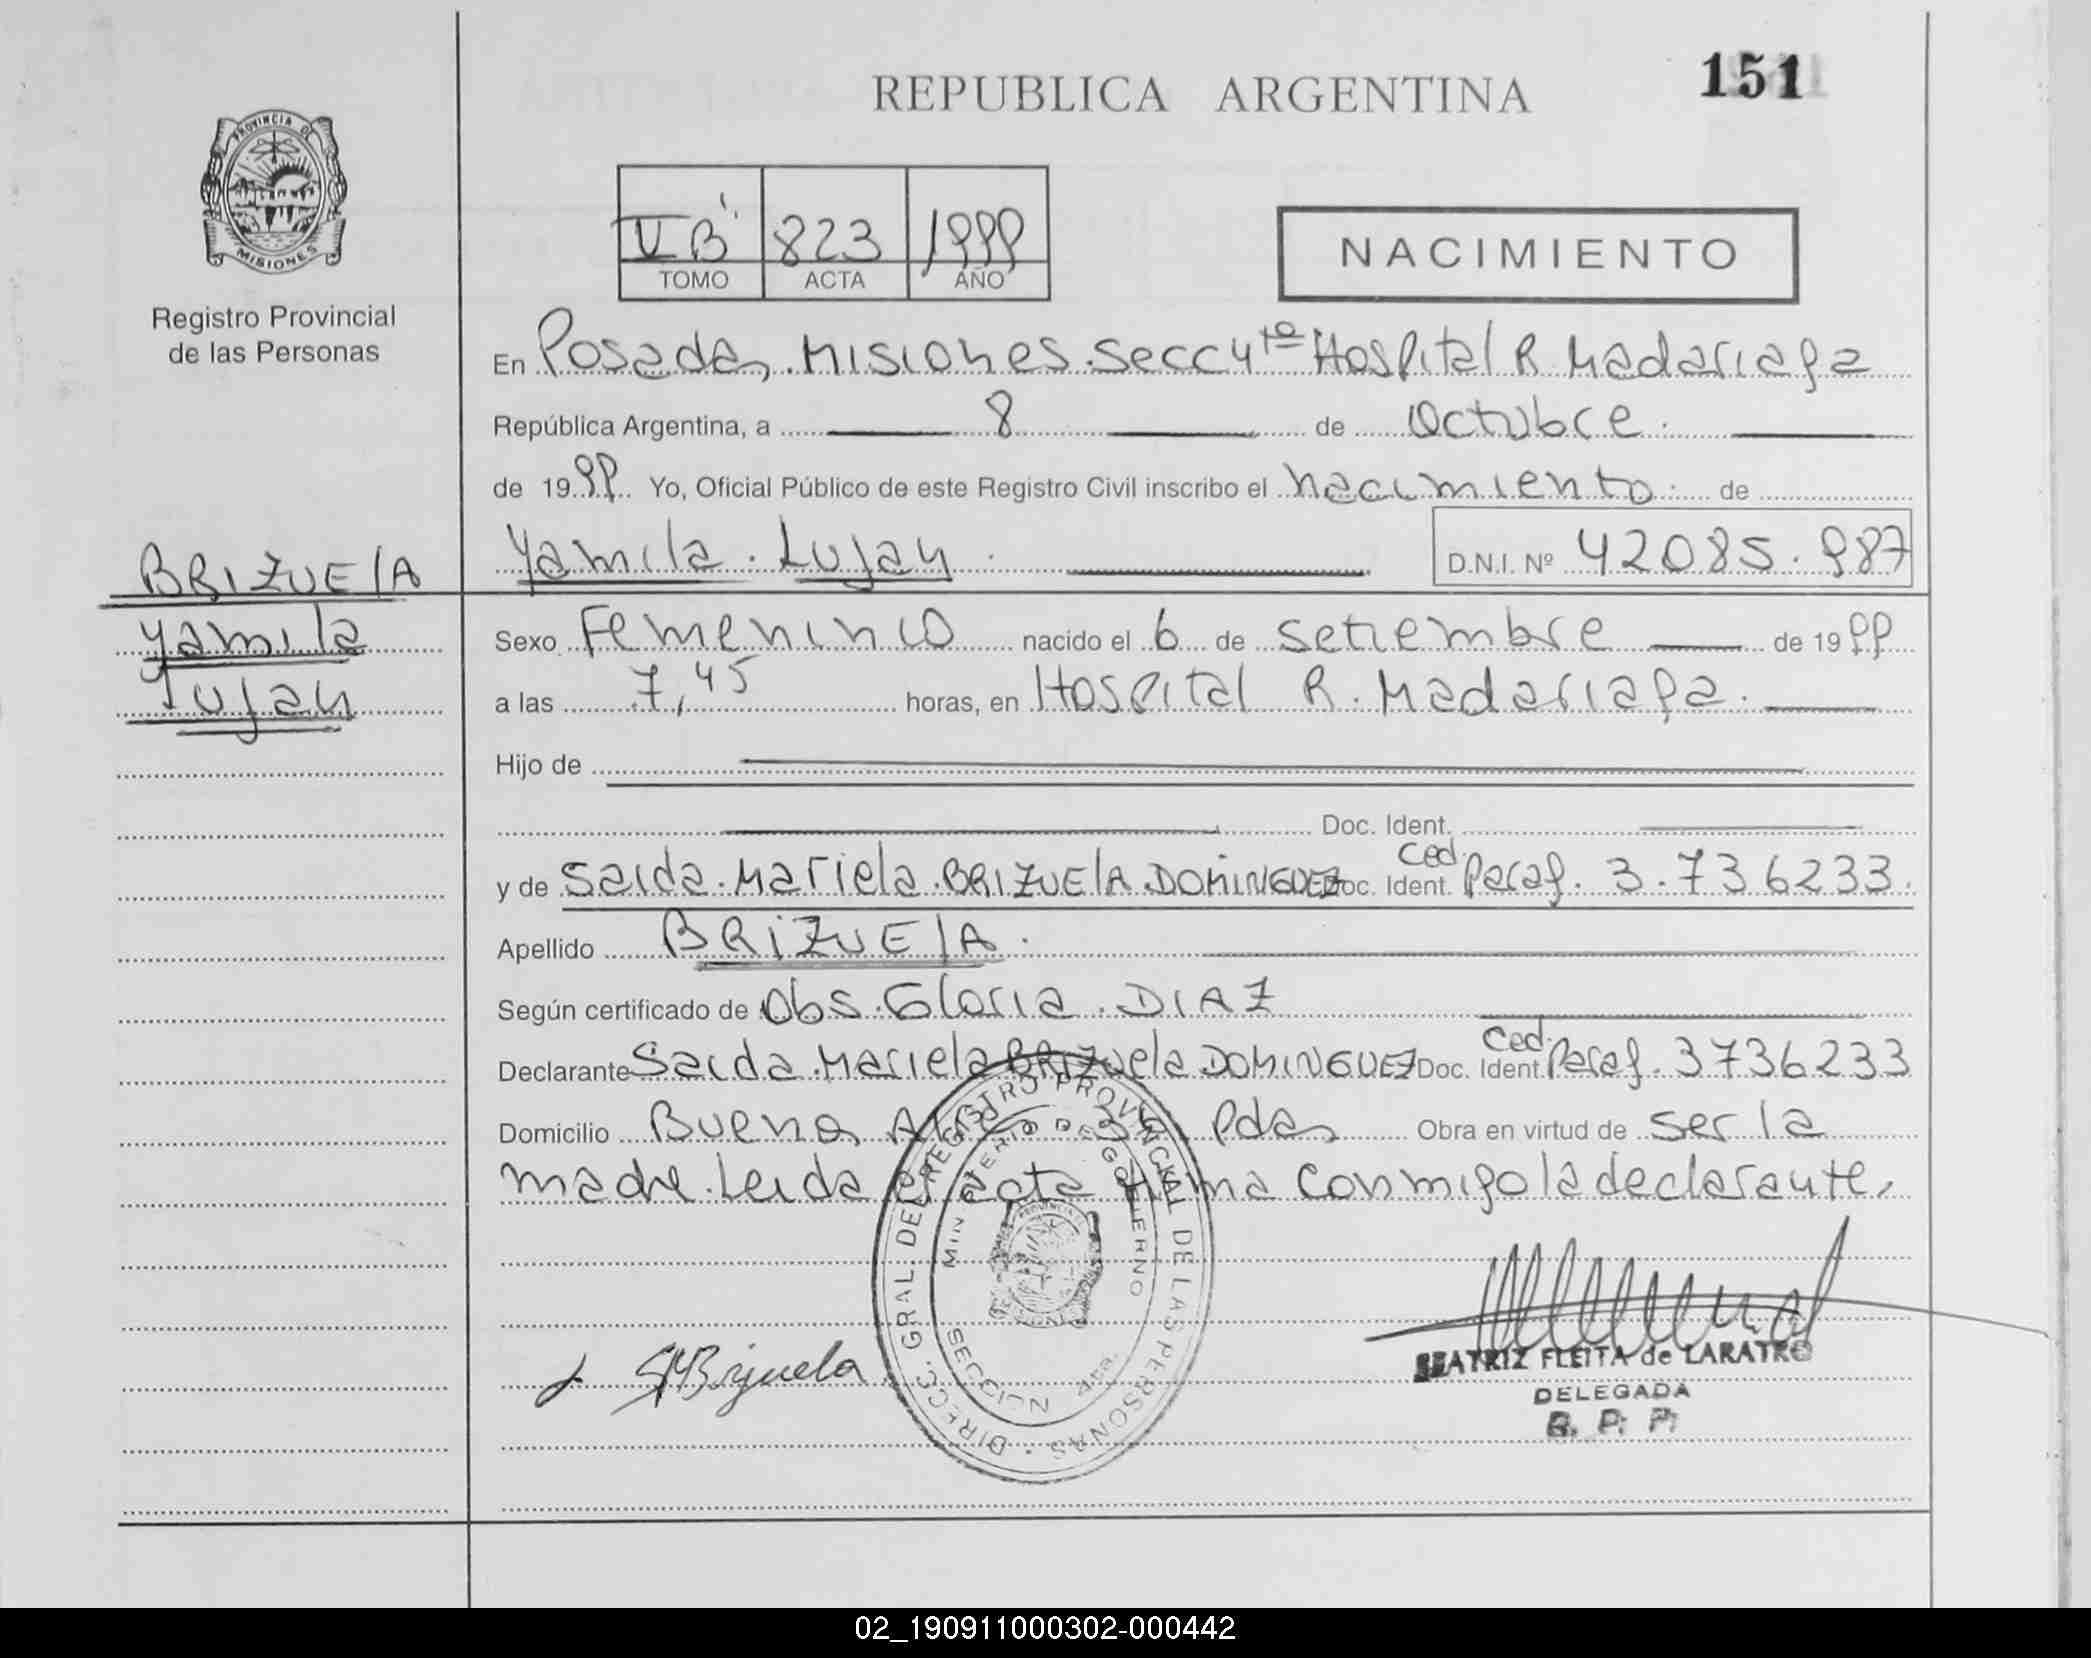 REPUBLICA ARGENTINA
151
PROVINCIA DE
MISIONES
Registro Provincial
de las Personas
V B' 823 1999
TOMO ACTA AÑO
NACIMIENTO
En Posadas, Misiones. Secc 4ta Hospital R. Madariaga
República Argentina, a 8 de Octubre.
de 1999. Yo, Oficial Público de este Registro Civil inscribo el nacimiento. de
Yamila. Lujan. D.N.I. Nº 42085.987
BRIZUElA
Yamila
Lujan
Sexo Femenino nacido el 6 de setiembre de 1999
a las 7,45 horas, en Hospital R. Madariaga.
Hijo de
Doc. Ident.
y de Saida. Mariela. BRIZUElA. DOMINGUEZ Doc. Ident. Ced. Parag. 3.736233.
Apellido BRIZUElA.
Según certificado de Obs. Gloria. DIAZ
Declarante Saida. Mariela BRIZuela DOMINGUEZ Doc. Ident. Ced. Parag. 3736233
Domicilio Buenos Pdas Obra en virtud de ser la
madre. Leida el acta firma conmigo la declarante.
DIRECC. GRAL. DEL REGISTRO PROVINCIAL DE LAS PERSONAS
MINISTERIO DE GOBIERNO
SECCION 4ta.
SMBrizuela
BEATRIZ FLEITA de LARATRO
DELEGADA
R. P. P.
02_190911000302-000442